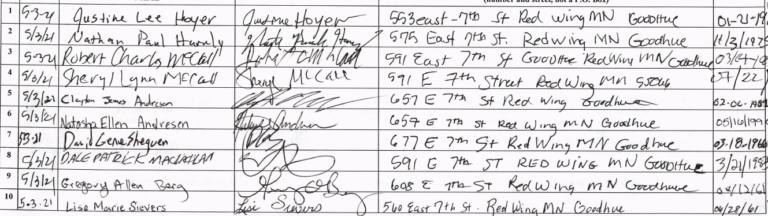 (number and street, not a P.O. Box)
1 5-3-21 Justine Lee Hoyer Justine Hoyer 553 east-7th St Red Wing MN Goodhue 01-21-19
2 5/3/21 Nathan Paul 575 East 7th St. Redwing MN Goodhue 11/3/197
3 5-3-21 Robert Charles McCall 591 East 7th St Goodhue RedWing MN Goodhue
4 5/3/21 Sheryl Lynn McCall Sheryl McCall 591 E 7th Street Red Wing MN 55066 07/22/
5 5/3/21 Clayton James Andresen 657 E 7th St Red Wing Goodhue
6 5/3/21 Natasha Ellen Andresen 657 E 7th st Red wing MN Goodhue
7 5-3-21 David Gene 677 E 7th St Red Wing MN Goodhue 03-18-1966
8 5/3/21 DALE PATRICK 591 E 7th ST RED WING MN GOODHUE 3/21/19
9 5/3/21 Gregory Allen Berg 608 E 7th St Red Wing MN Goodhue
10 5-03-21 Lisa Marie Sievers Lisa Sievers 560 East 7th St. Red Wing MN Goodhue 04/28/61